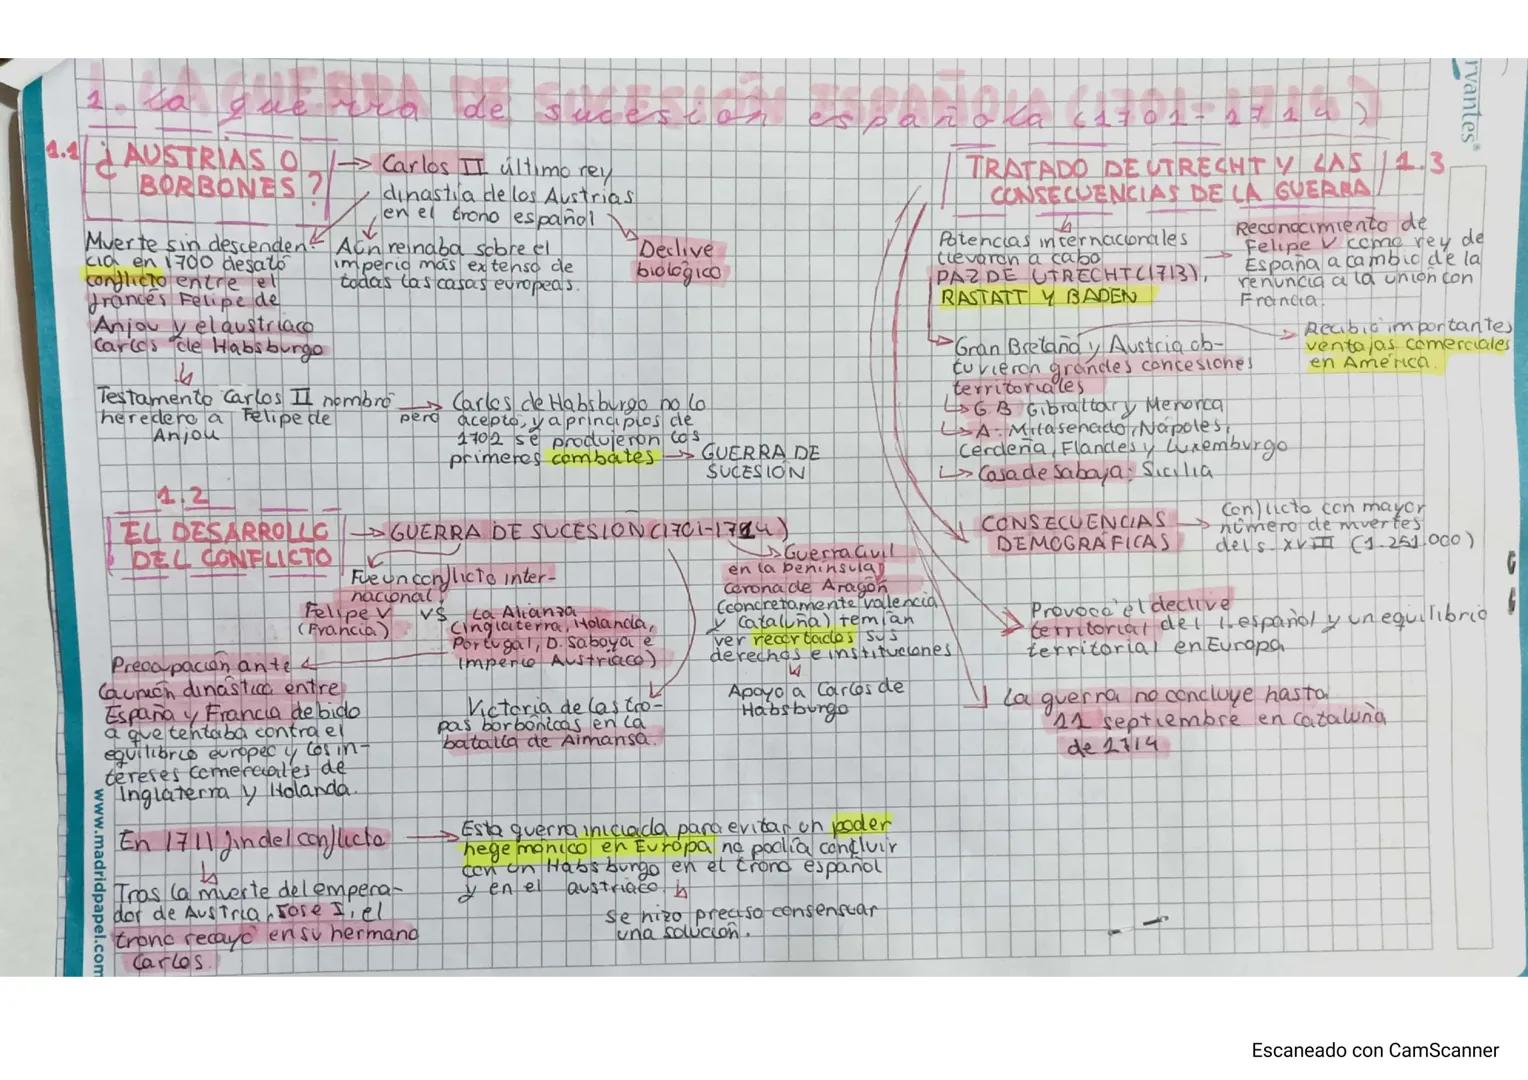 1. La guerra de sucesión española (1701-1714)
1.1 ¿AUSTRIAS O
BORBONES?
→ Carlos II último rey
dinastía de los Austrias
en el trono español
Muerte sin descenden-
cia en 1700 desató
conflicto entre el
francés Felipe de
Anjou y el austriaco
Carlos de Habsburgo
Aún reinaba sobre el
imperio más extenso de
todas las casas europeas.
Declive
biológico
Testamento Carlos II nombró
heredero a Felipe de
Anjou
pero
Carlos de Habsburgo no lo
aceptó, y a principios de
1702 se produjeron los
primeros combates → GUERRA DE
SUCESIÓN
1.2
EL DESARROLLO
DEL CONFLICTO
→ GUERRA DE SUCESIÓN (1701-1714)
Fue un conflicto inter-
nacional
Felipe V
(Francia)
vs
La Alianza
(Inglaterra, Holanda,
Portugal, D. Saboya e
Imperio Austriaco)
Guerra Civil
en la península
corona de Aragón
(concretamente Valencia
y Cataluña) temían
ver recortados sus
derechos e instituciones
Apoyo a Carlos de
Habsburgo
Preocupación ante
la unión dinástica entre
España y Francia debido
a que tentaba contra el
equilibrio europeo y los in-
tereses comerciales de
Inglaterra y Holanda.
Victoria de las tro-
pas borbónicas en la
batalla de Almansa.
En 1711 fin del conflicto
Tras la muerte del empera-
dor de Austria, Jose I, el
trono recayó en su hermano
Carlos.
→ Esta guerra iniciada para evitar un poder
hegemónico en Europa no podía concluir
con un Habsburgo en el trono español
y en el austriaco.
Se hizo preciso consensuar
una solución.
TRATADO DE UTRECHT Y LAS
CONSECUENCIAS DE LA GUERRA
1.3
Potencias internacionales
llevaron a cabo
PAZ DE UTRECHT (1713),
RASTATT Y BADEN
Reconocimiento de
Felipe V como rey de
España a cambio de la
renuncia a la unión con
Francia.
Gran Bretaña y Austria ob-
tuvieron grandes concesiones
territoriales
Recibió importantes
ventajas comerciales
en América.
↳ G.B Gibraltar y Menorca
↳ A. Milasenado, Nápoles,
Cerdeña, Flandes y Luxemburgo
↳ Casa de Saboya: Sicilia
CONSECUENCIAS
DEMOGRÁFICAS
→ Conflicto con mayor
número de muertes
del s. XVIII (1.251.000)
Provocó el declive
territorial del I. español y un equilibrio
territorial en Europa
La guerra no concluye hasta
11 septiembre en Cataluña
de 1714
rvantes®
www.madridpapel.com
Escaneado con CamScanner